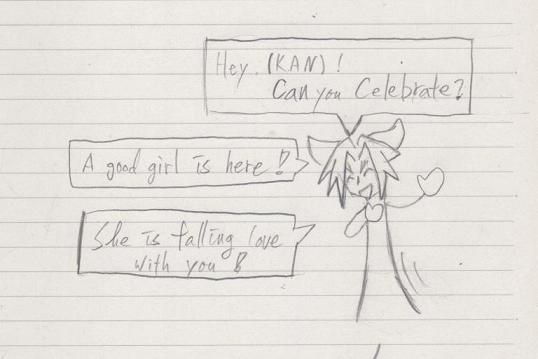 Hey. (KAN)!
Can you Celebrate?
A good girl is here!
She is falling love
with you!